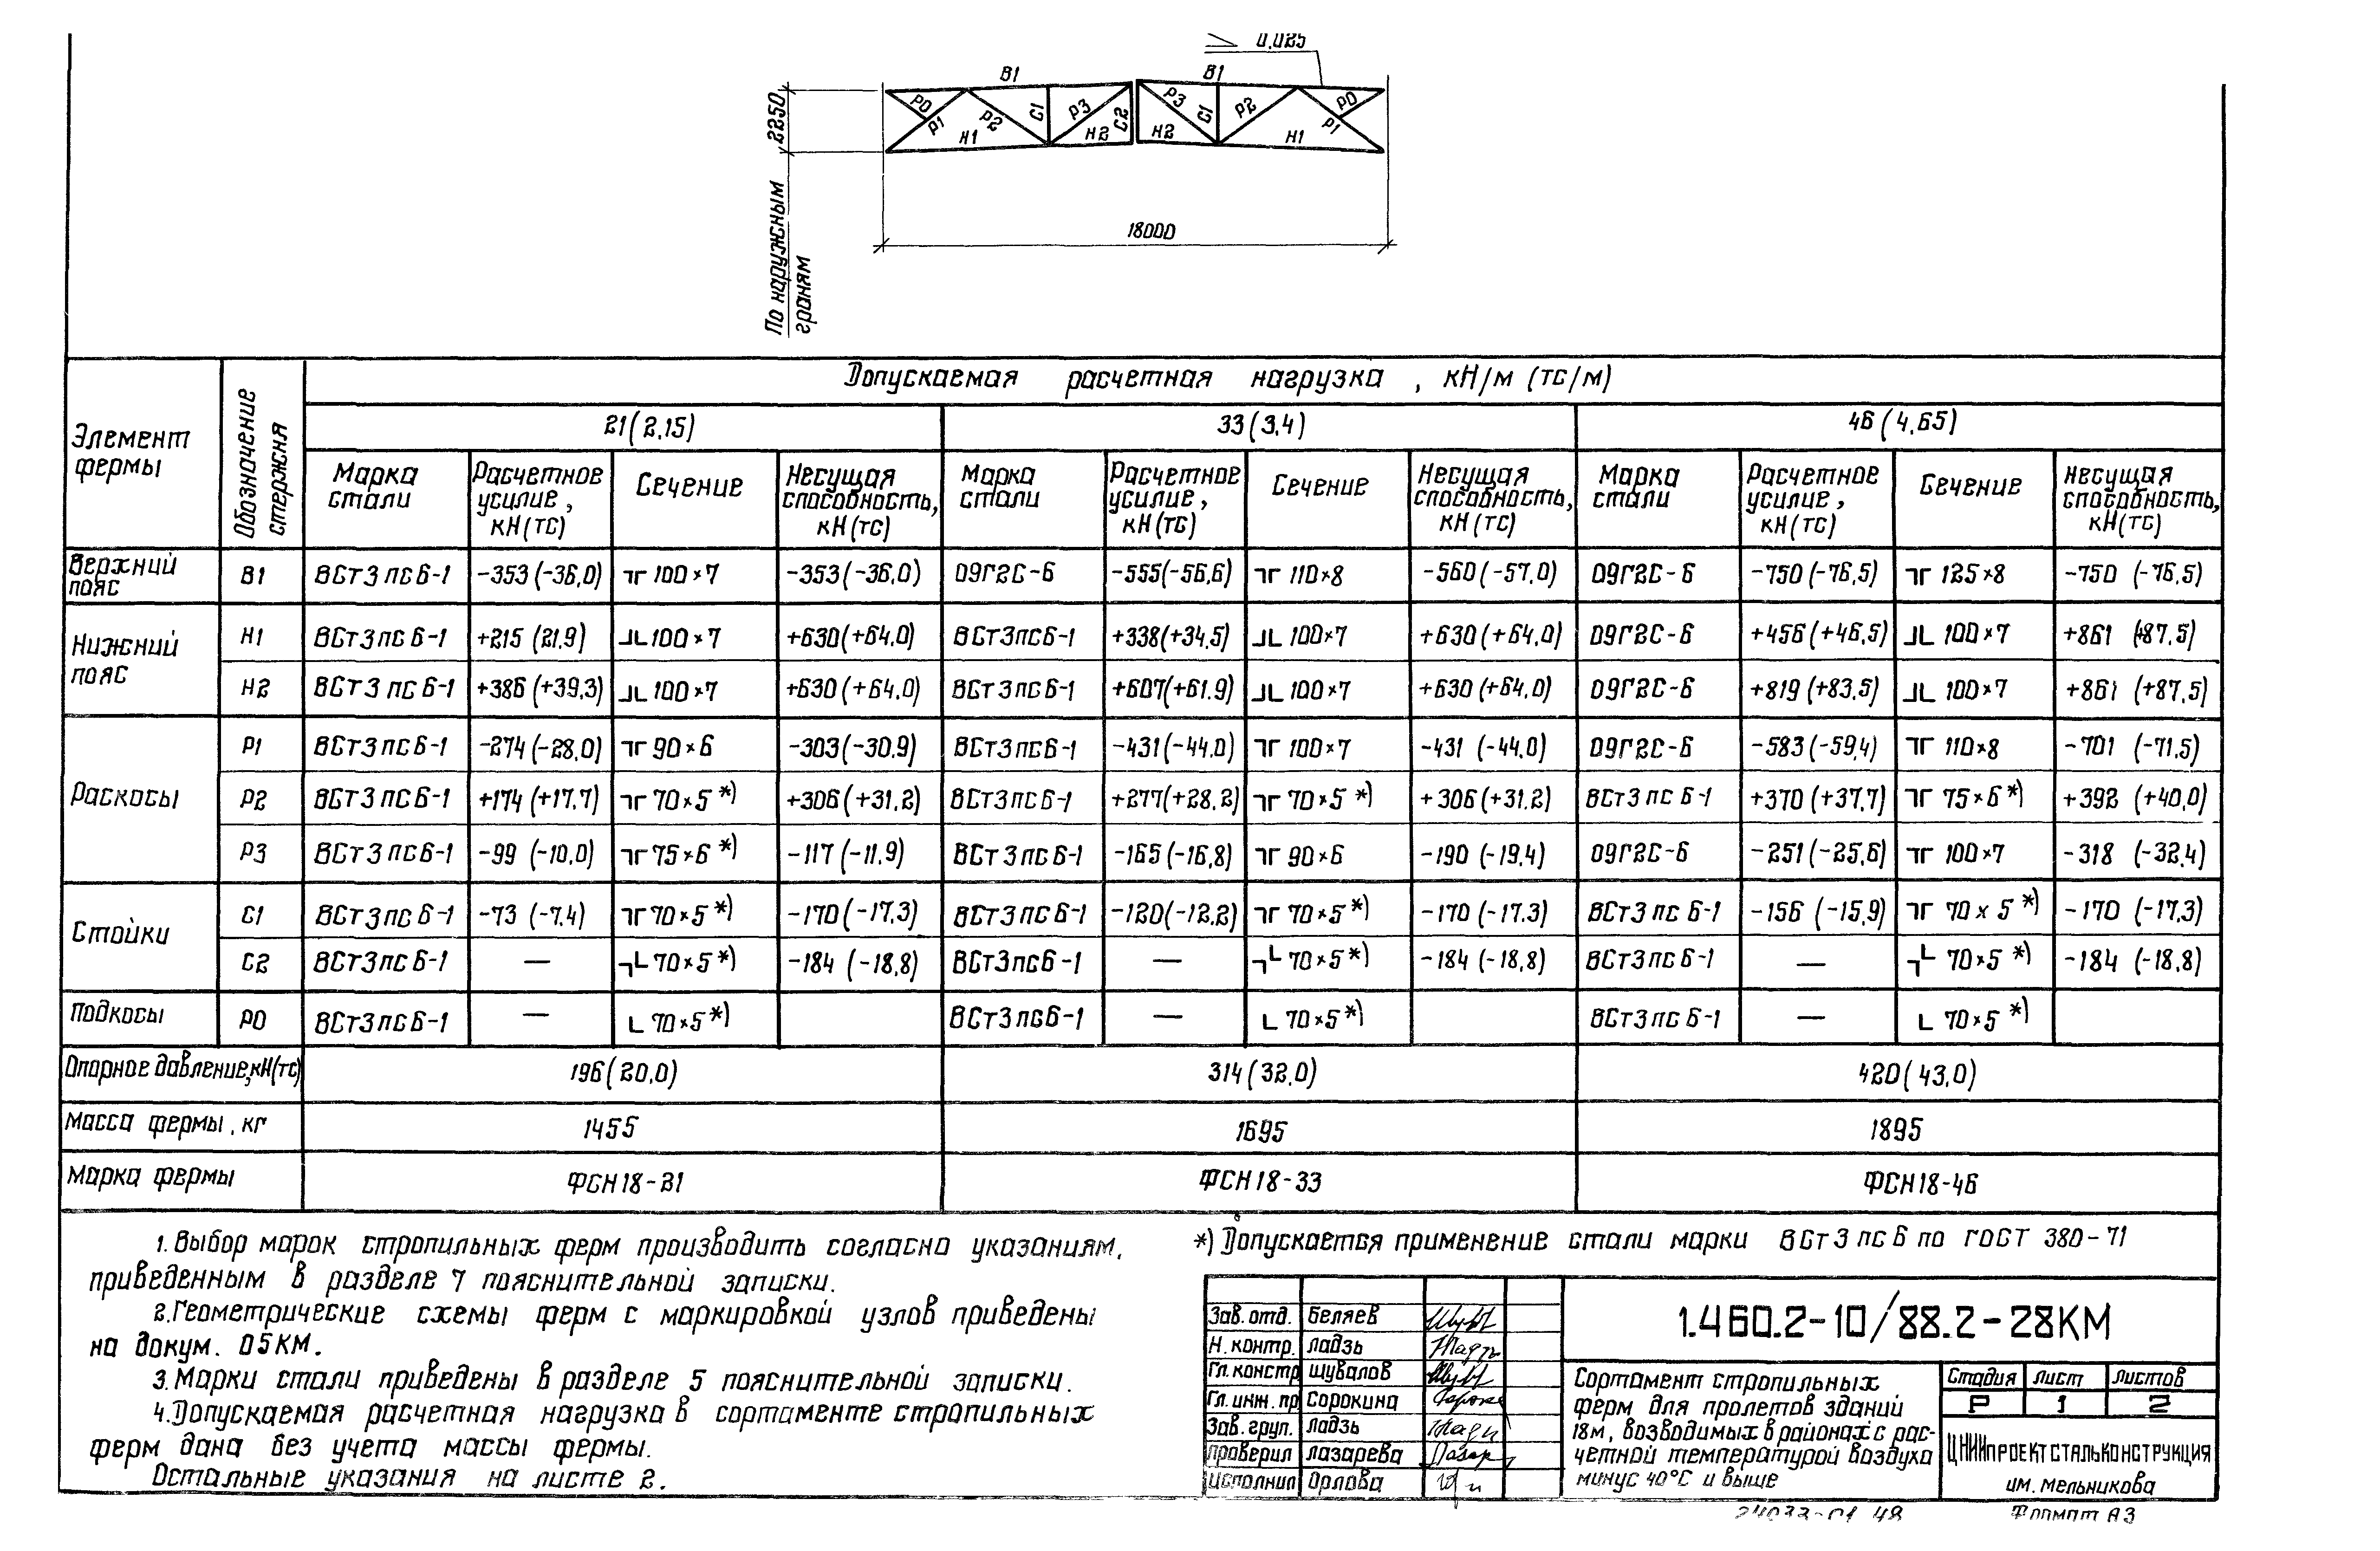 0,025
В1 В1
Р0 Р1 Н1 Р2 С1 Р3 Н2 С2 Р3 Н2 С1 Р2 Н1 Р1 Р0
2250
По наружным
граням
18000
Элемент фермы
Обозначение стержня
Допускаемая расчетная нагрузка, кН/м (тс/м)
21(2,15) 33(3,4) 46(4,65)
Марка стали Расчетное усилие, кН(тс) Сечение Несущая способность, кН(тс) Марка стали Расчетное усилие, кН(тс) Сечение Несущая способность, кН(тс) Марка стали Расчетное усилие, кН(тс) Сечение Несущая способность, кН(тс)
Верхний пояс В1 ВСт3пс6-1 -353(-36,0) ⅂Г 100×7 -353(-36,0) 09Г2С-6 -555(-56,6) ⅂Г 110×8 -560(-57,0) 09Г2С-6 -750(-76,5) ⅂Г 125×8 -750 (-76,5)
Нижний пояс
Н1 ВСт3пс6-1 +215 (21,9) ⅃L 100×7 +630(+64,0) ВСт3пс6-1 +338(+34,5) ⅃L 100×7 +630(+64,0) 09Г2С-6 +456(+46,5) ⅃L 100×7 +861 (+87,5)
Н2 ВСт3пс6-1 +386 (+39,3) ⅃L 100×7 +630(+64,0) ВСт3пс6-1 +607(+61.9) ⅃L 100×7 +630 (+64,0) 09Г2С-6 +819 (+83,5) ⅃L 100×7 +861 (+87,5)
Раскосы
Р1 ВСт3пс6-1 -274(-28,0) ⅂Г 90×6 -303(-30.9) ВСт3пс6-1 -431(-44.0) ⅂Г 100×7 -431 (-44,0) 09Г2С-6 -583(-59,4) ⅂Г 110×8 -701 (-71,5)
Р2 ВСт3пс6-1 +174 (+17,7) ⅂Г 70×5 *) +306(+31,2) ВСт3пс6-1 +277(+28,2) ⅂Г 70×5 *) +306(+31.2) ВСт3пс6-1 +370 (+37,7) ⅂Г 75×6 *) +392 (+40,0)
Р3 ВСт3пс6-1 -99 (-10,0) ⅂Г 75×6 *) -117 (-11,9) ВСт3пс6-1 -165(-16,8) ⅂Г 90×6 -190 (-19,4) 09Г2С-6 -251(-25,6) ⅂Г 100×7 -318 (-32,4)
Стойки
С1 ВСт3пс6-1 -73 (-7,4) ⅂Г 70×5 *) -170(-17,3) ВСт3пс6-1 -120(-12,2) ⅂Г 70×5 *) -170 (-17.3) ВСт3пс6-1 -156 (-15,9) ⅂Г 70×5 *) -170 (-17,3)
С2 ВСт3пс6-1 — ⅂L 70×5 *) -184 (-18,8) ВСт3пс6-1 — ⅂L 70×5 *) -184 (-18,8) ВСт3пс6-1 — ⅂L 70×5 *) -184 (-18,8)
Подкосы Р0 ВСт3пс6-1 — L 70×5 *) ВСт3пс6-1 — L 70×5 *) ВСт3пс6-1 — L 70×5 *)
Опорное давление, кН(тс) 196(20,0) 314(32,0) 420(43,0)
Масса фермы, кг 1455 1695 1895
Марка фермы ФСН18-21 ФСН18-33 ФСН18-46
1. Выбор марок стропильных ферм производить согласно указаниям,
приведенным в разделе 7 пояснительной записки.
2. Геометрические схемы ферм с маркировкой узлов приведены
на докум. 05КМ.
3. Марки стали приведены в разделе 5 пояснительной записки.
4. Допускаемая расчетная нагрузка в сортаменте стропильных
ферм дана без учета массы фермы.
Остальные указания на листе 2.
*) Допускается применение стали марки ВСт3пс6 по ГОСТ 380-71
Зав. отд. Беляев
Н. контр. Ладзь
Гл. констр Шувалов
Гл. инж. пр Сорокина
Зав. груп. Ладзь
Проверил Лазарева
Исполнил Орлова
1.460.2-10/88.2-28КМ
Сортамент стропильных
ферм для пролетов зданий
18м, возводимых в районах с рас-
четной температурой воздуха
минус 40°С и выше
Стадия Лист Листов
Р 1 2
ЦНИИПРОЕКТСТАЛЬКОНСТРУКЦИЯ
им. Мельникова
24033-01 48
Формат А3